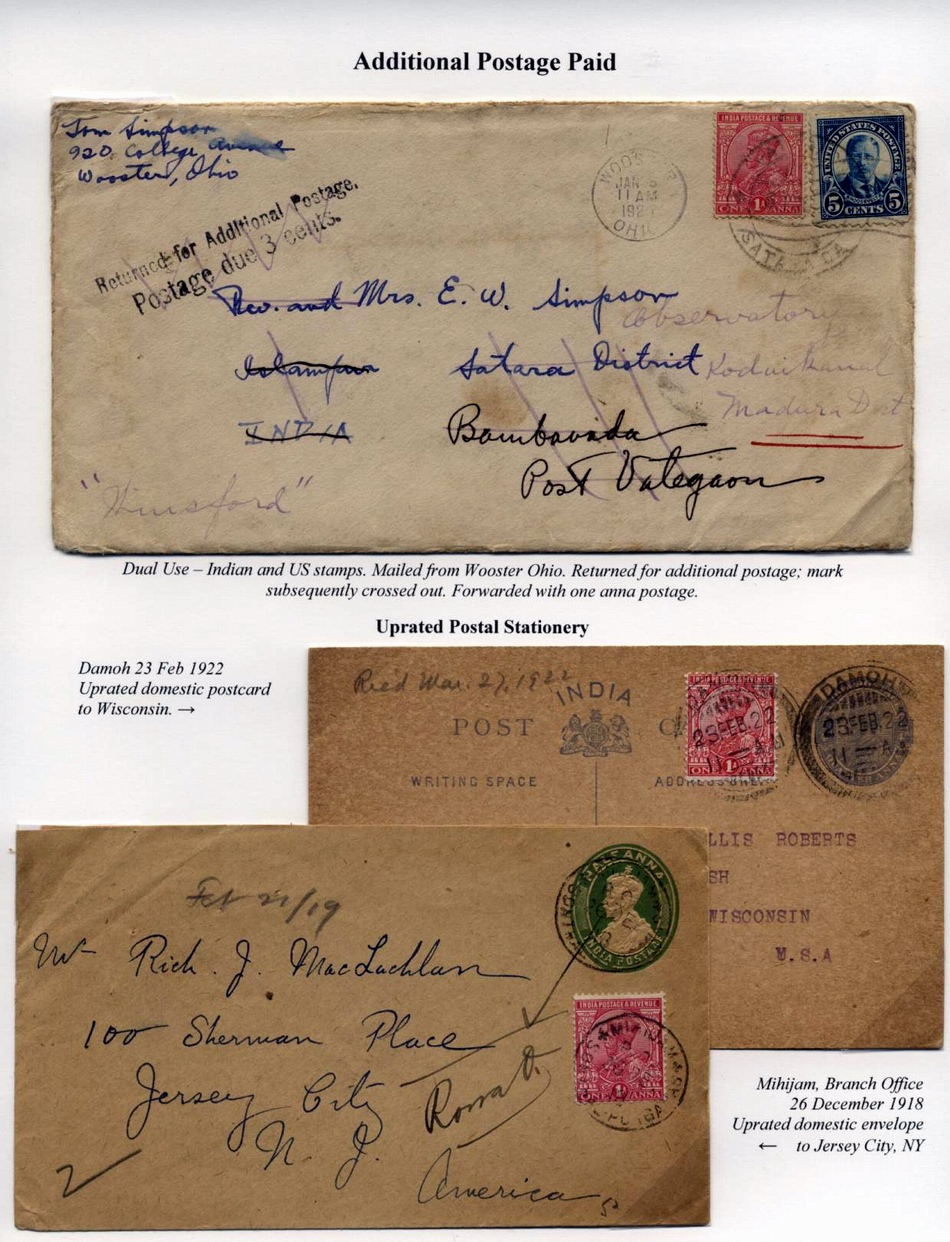 Additional Postage Paid
Tom Simpson
920 College Avenue
Wooster, Ohio
Returned for Additional Postage.
Postage due 3 cents.
WOOSTER
JAN
11 AM
192
OHIO
INDIA POSTAGE & REVENUE
1A
ONE ANNA
UNITED STATES POSTAGE
5 CENTS 5
SATARA
Rev. and Mrs. E. W. Simpson
Islampur Satara District
INDIA
Bambavada
Post Vategaon
Observatory
Kodaikanal
Madura Dist
"Kinsford"
Dual Use – Indian and US stamps. Mailed from Wooster Ohio. Returned for additional postage; mark
subsequently crossed out. Forwarded with one anna postage.
Uprated Postal Stationery
Damoh 23 Feb 1922
Uprated domestic postcard
to Wisconsin. →
Rec'd Mar. 27, 1922
INDIA
POST C
WRITING SPACE
ADDRESS
INDIA POSTAGE & REVENUE
23 FEB. 22
11
1A
ONE ANNA
DAMOH
23 FEB. 22
11
LLIS ROBERTS
SH
WISCONSIN
U.S.A
Feb 21/19
HALF ANNA
INDIA POSTAGE
Mr Rich. J. MacLachlan
100 Sherman Place
Jersey City
N. J.
America
2
INDIA POSTAGE & REVENUE
1A
ONE ANNA
MIHIJAM
Mihijam, Branch Office
26 December 1918
Uprated domestic envelope
← to Jersey City, NY